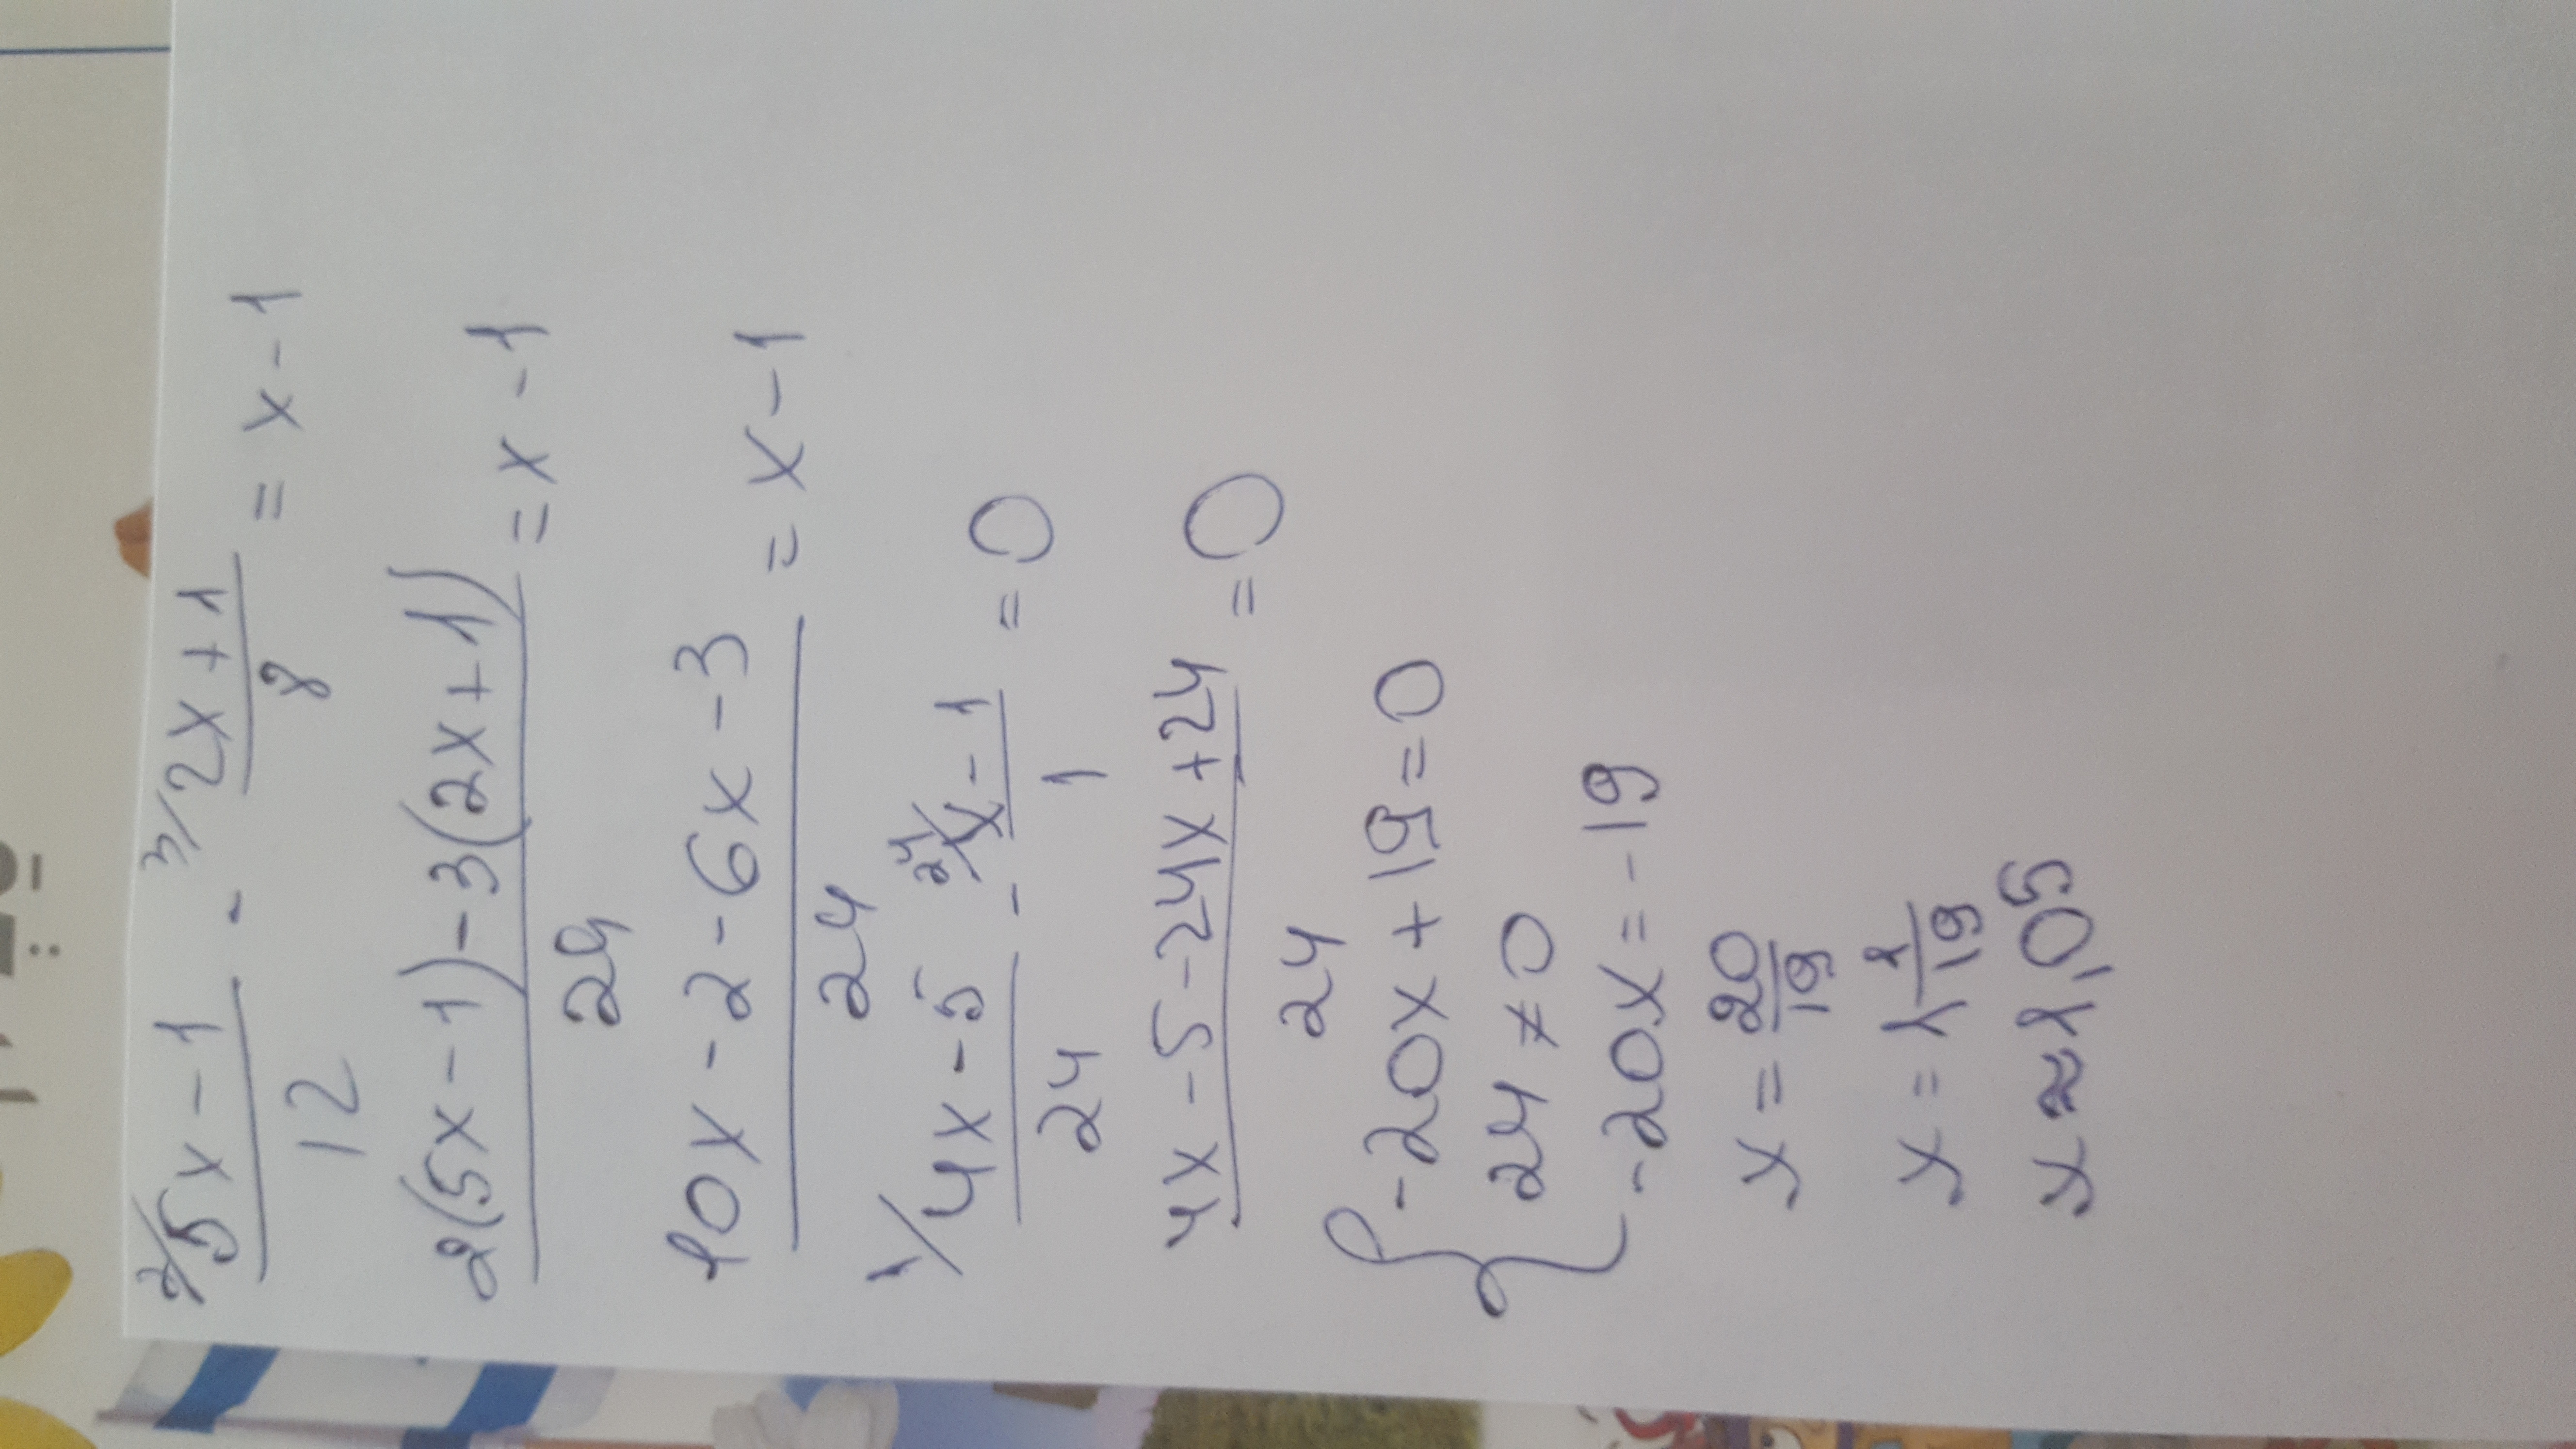 2/ 5x-1/12 - 3/ 2x+1/8 = x-1
2(5x-1)-3(2x+1)/24 = x-1
10x-2-6x-3/24 = x-1
1/ 4x-5/24 - 24/ x-1/1 = 0
4x-5-24x+24/24 = 0
{ -20x+19=0
24≠0
-20x=-19
x=20/19
x=1 1/19
x≈1,05